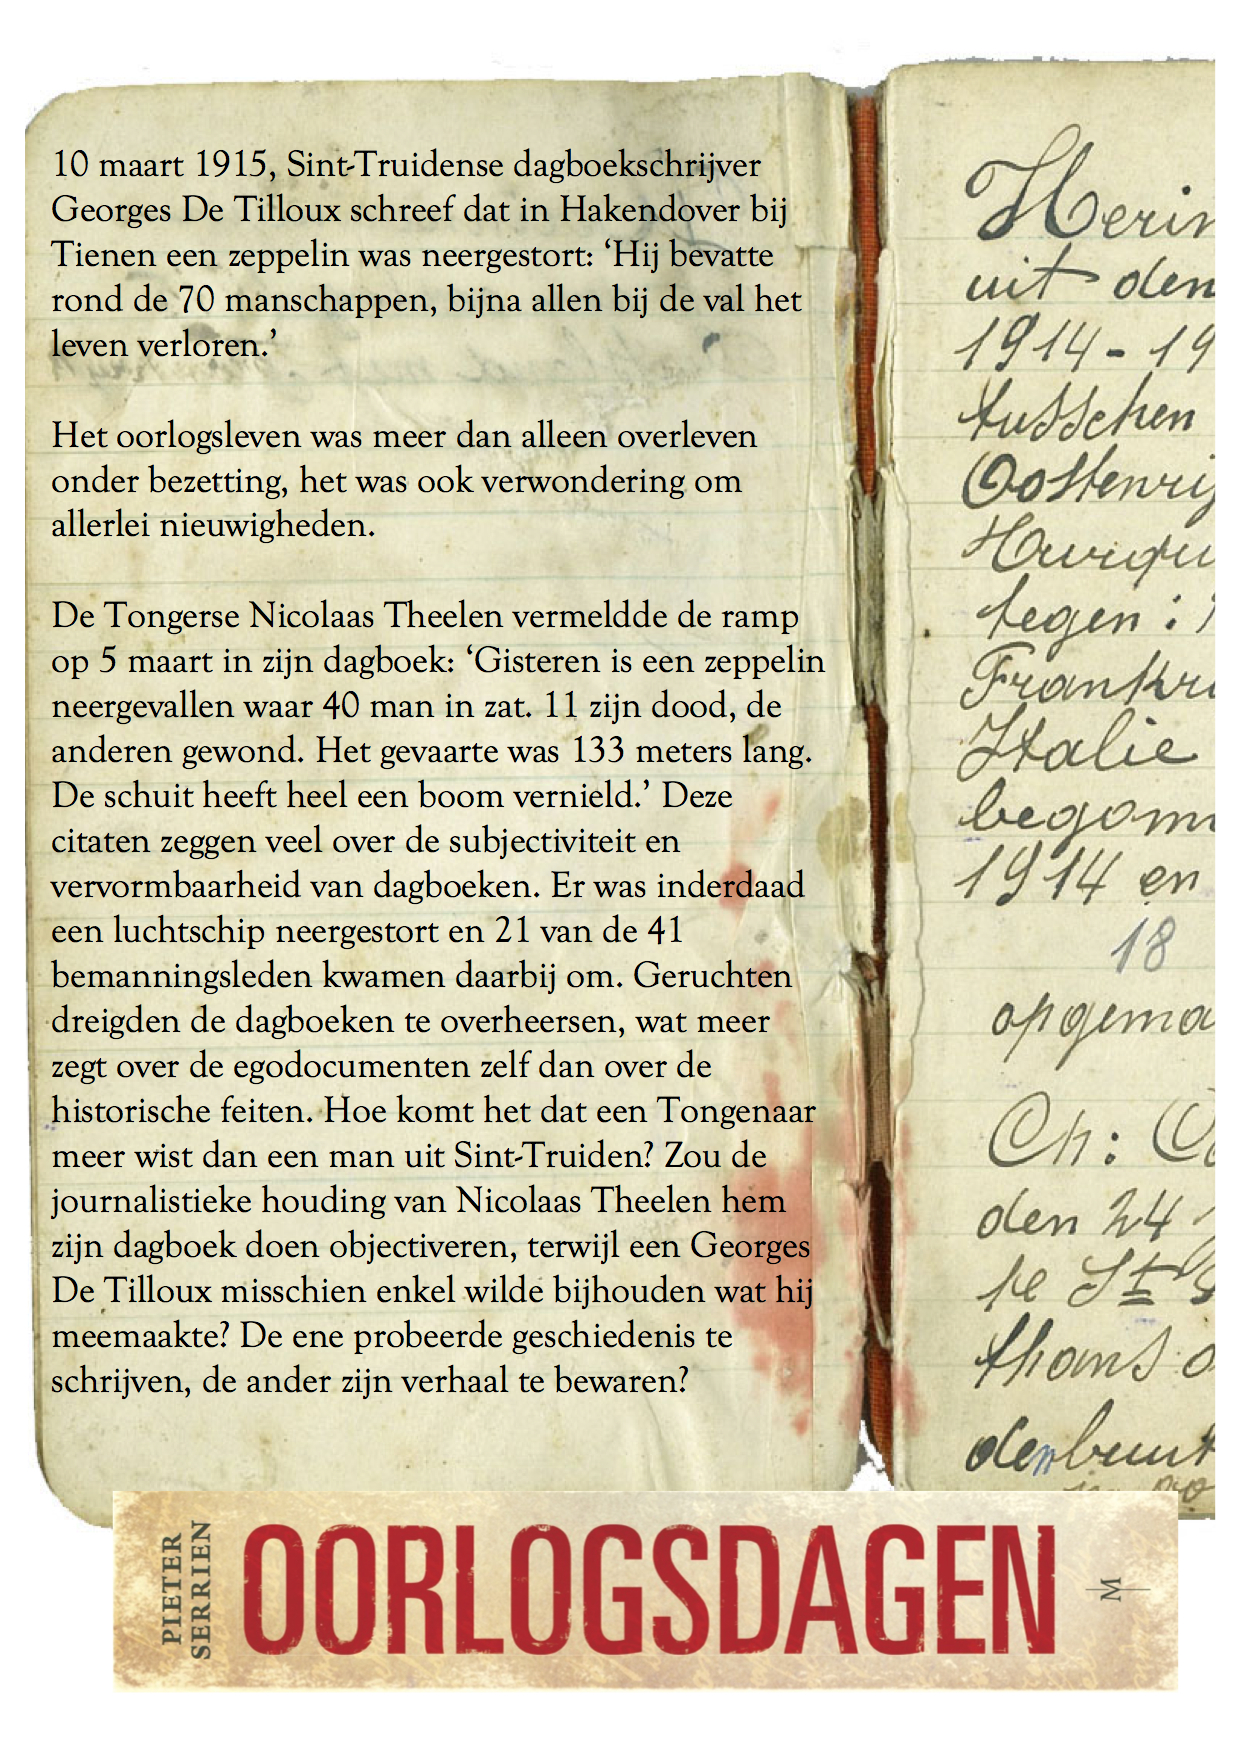 10 maart 1915, Sint-Truidense dagboekschrijver
Georges De Tilloux schreef dat in Hakendover bij
Tienen een zeppelin was neergestort: ‘Hij bevatte
rond de 70 manschappen, bijna allen bij de val het
leven verloren.’
Het oorlogsleven was meer dan alleen overleven
onder bezetting, het was ook verwondering om
allerlei nieuwigheden.
De Tongerse Nicolaas Theelen vermeldde de ramp
op 5 maart in zijn dagboek: ‘Gisteren is een zeppelin
neergevallen waar 40 man in zat. 11 zijn dood, de
anderen gewond. Het gevaarte was 133 meters lang.
De schuit heeft heel een boom vernield.’ Deze
citaten zeggen veel over de subjectiviteit en
vervormbaarheid van dagboeken. Er was inderdaad
een luchtschip neergestort en 21 van de 41
bemanningsleden kwamen daarbij om. Geruchten
dreigden de dagboeken te overheersen, wat meer
zegt over de egodocumenten zelf dan over de
historische feiten. Hoe komt het dat een Tongenaar
meer wist dan een man uit Sint-Truiden? Zou de
journalistieke houding van Nicolaas Theelen hem
zijn dagboek doen objectiveren, terwijl een Georges
De Tilloux misschien enkel wilde bijhouden wat hij
meemaakte? De ene probeerde geschiedenis te
schrijven, de ander zijn verhaal te bewaren?
Herin
uit den
1914-19
tusschen
Oostenrij
tegen:
Frankr
Italie
begon
1914 en
18
opgema
Ch:
den 24
te St
thans
PIETER
SERRIEN
OORLOGSDAGEN
M